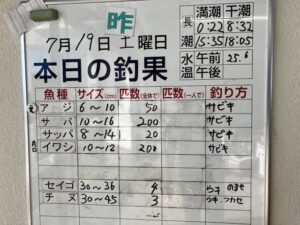 昨
7月19日 土曜日
本日の釣果
長潮 満潮 干潮
0:22 8:32
15:35 18:05
水温 午前 25.6
午後
魚種 サイズ(cm) 匹数(全体で) 匹数(一人で) 釣り方
アジ 6～10 50 サビキ
サバ 10～16 200 サビキ
サッパ 8～14 20 サビキ
イワシ 10～12 200 サビキ
セイゴ 30～36 4 ウキ のませ
チヌ 30～45 3 ウキ フカセ